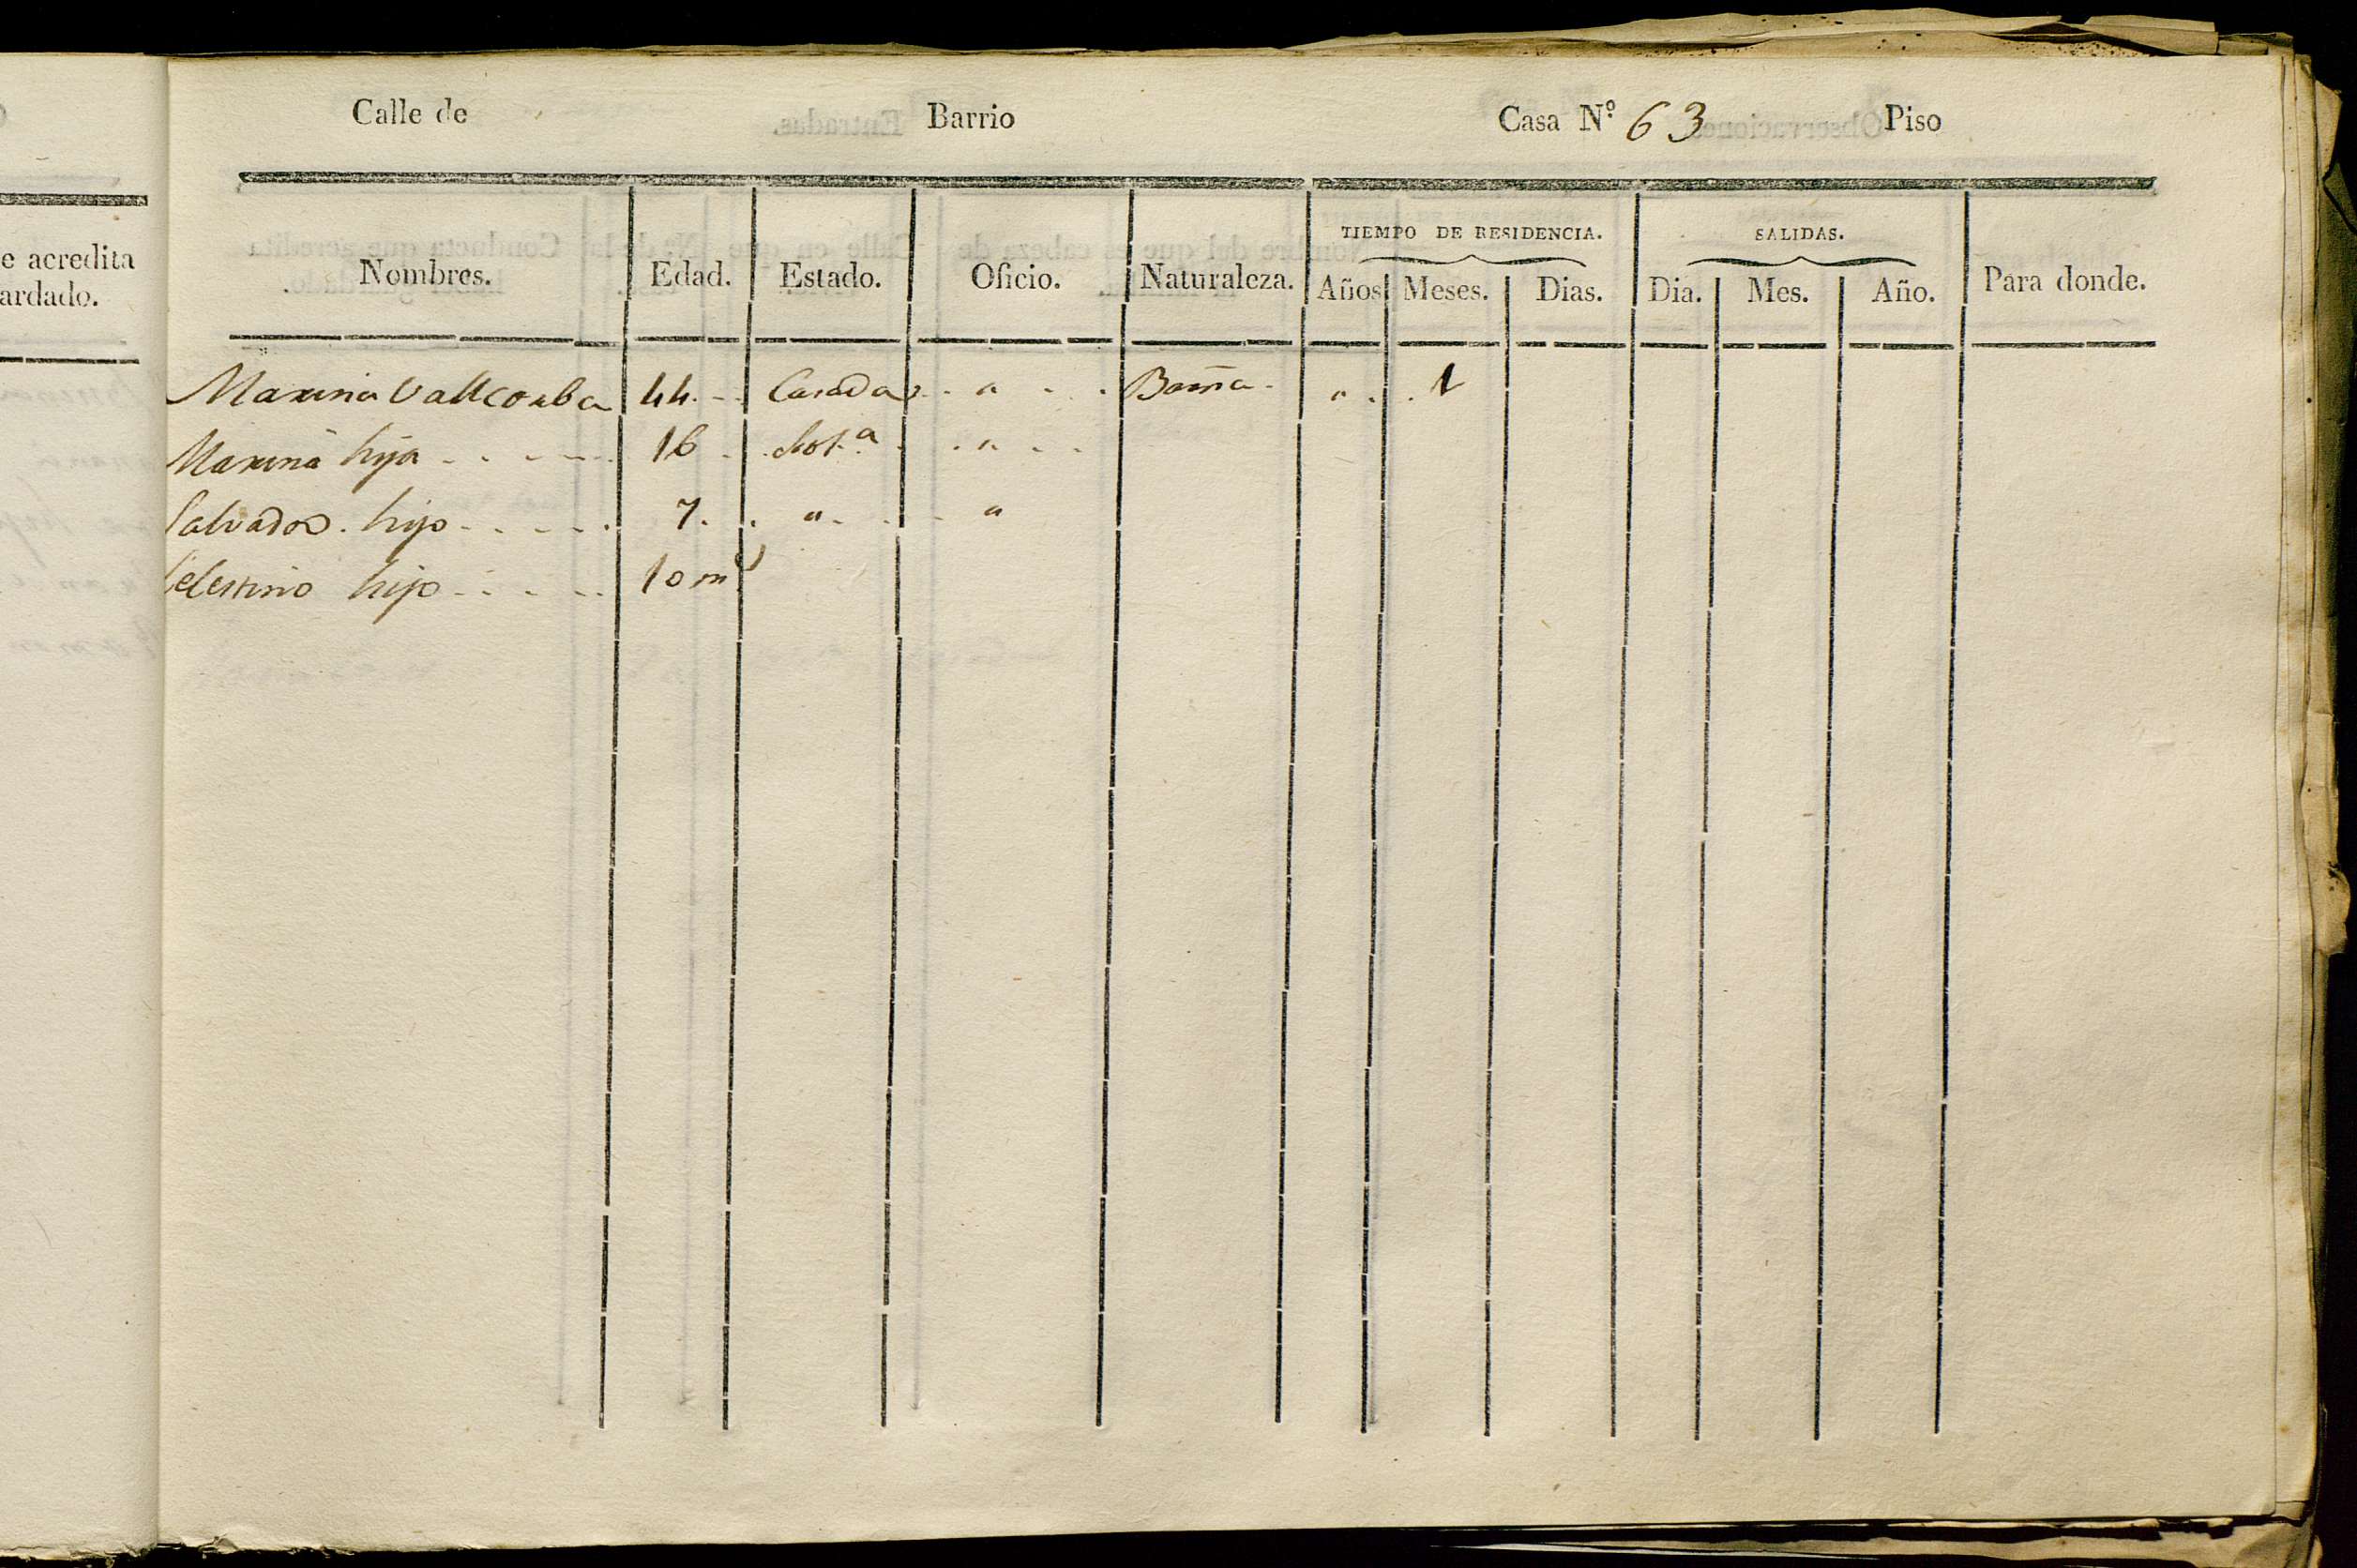 Calle de Barrio Casa Nº 63 Piso
e acredita
ardado.
TIEMPO DE RESIDENCIA. SALIDAS.
Nombres. Edad. Estado. Oficio. Naturaleza. Años Meses. Dias. Dia. Mes. Año. Para donde.
44. Casada " Barna. " 1
hija 16 Solt.a "
Salvador. hijo 7. " "
Celestino hijo 10 ms